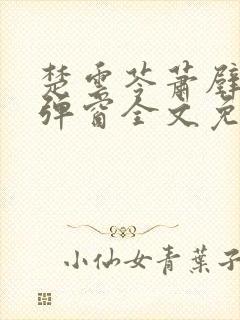 楚云苓萧壁
弹窗全文免
小仙女青葉子